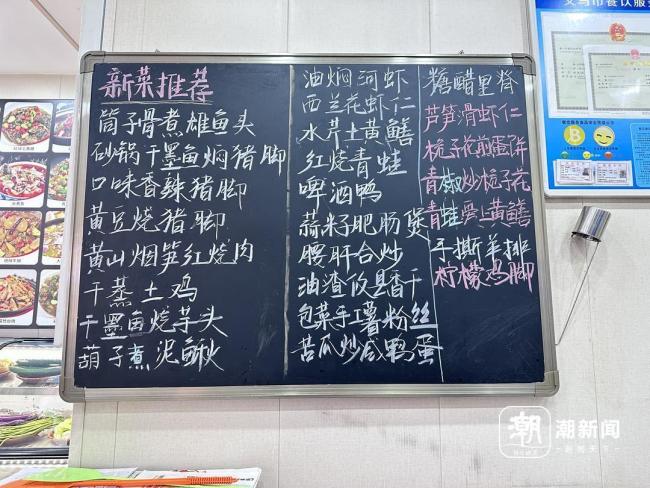 新菜推荐
筒子骨煮雄鱼头
砂锅干墨鱼焖猪脚
口味香辣猪脚
黄豆烧猪脚
黄山烟笋红烧肉
干蒸土鸡
干墨鱼烧芋头
葫子煮泥鳅
油焖河虾
西兰花虾仁
水芹土黄鳝
红烧青蛙
啤酒鸭
蒜籽肥肠煲
腰肝合炒
油渣攸县香干
包菜手工薯粉丝
苦瓜炒咸鸭蛋
糖醋里脊
芦笋滑虾仁
栀子花煎蛋饼
青椒炒栀子花
青蛙爱上黄鳝
手撕羊排
柠檬鸡脚
义乌市餐饮服
潮
潮新闻